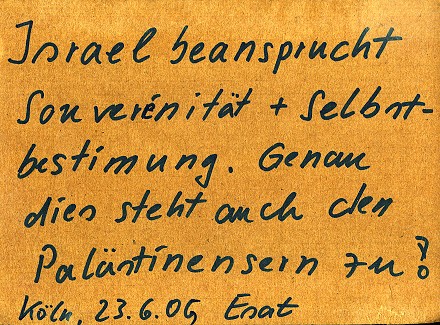 Israel beansprucht
Souverénität + Selbst-
bestimung. Genau
dies steht auch den
Palästinensern zu!
Köln, 23.6.05 Esat